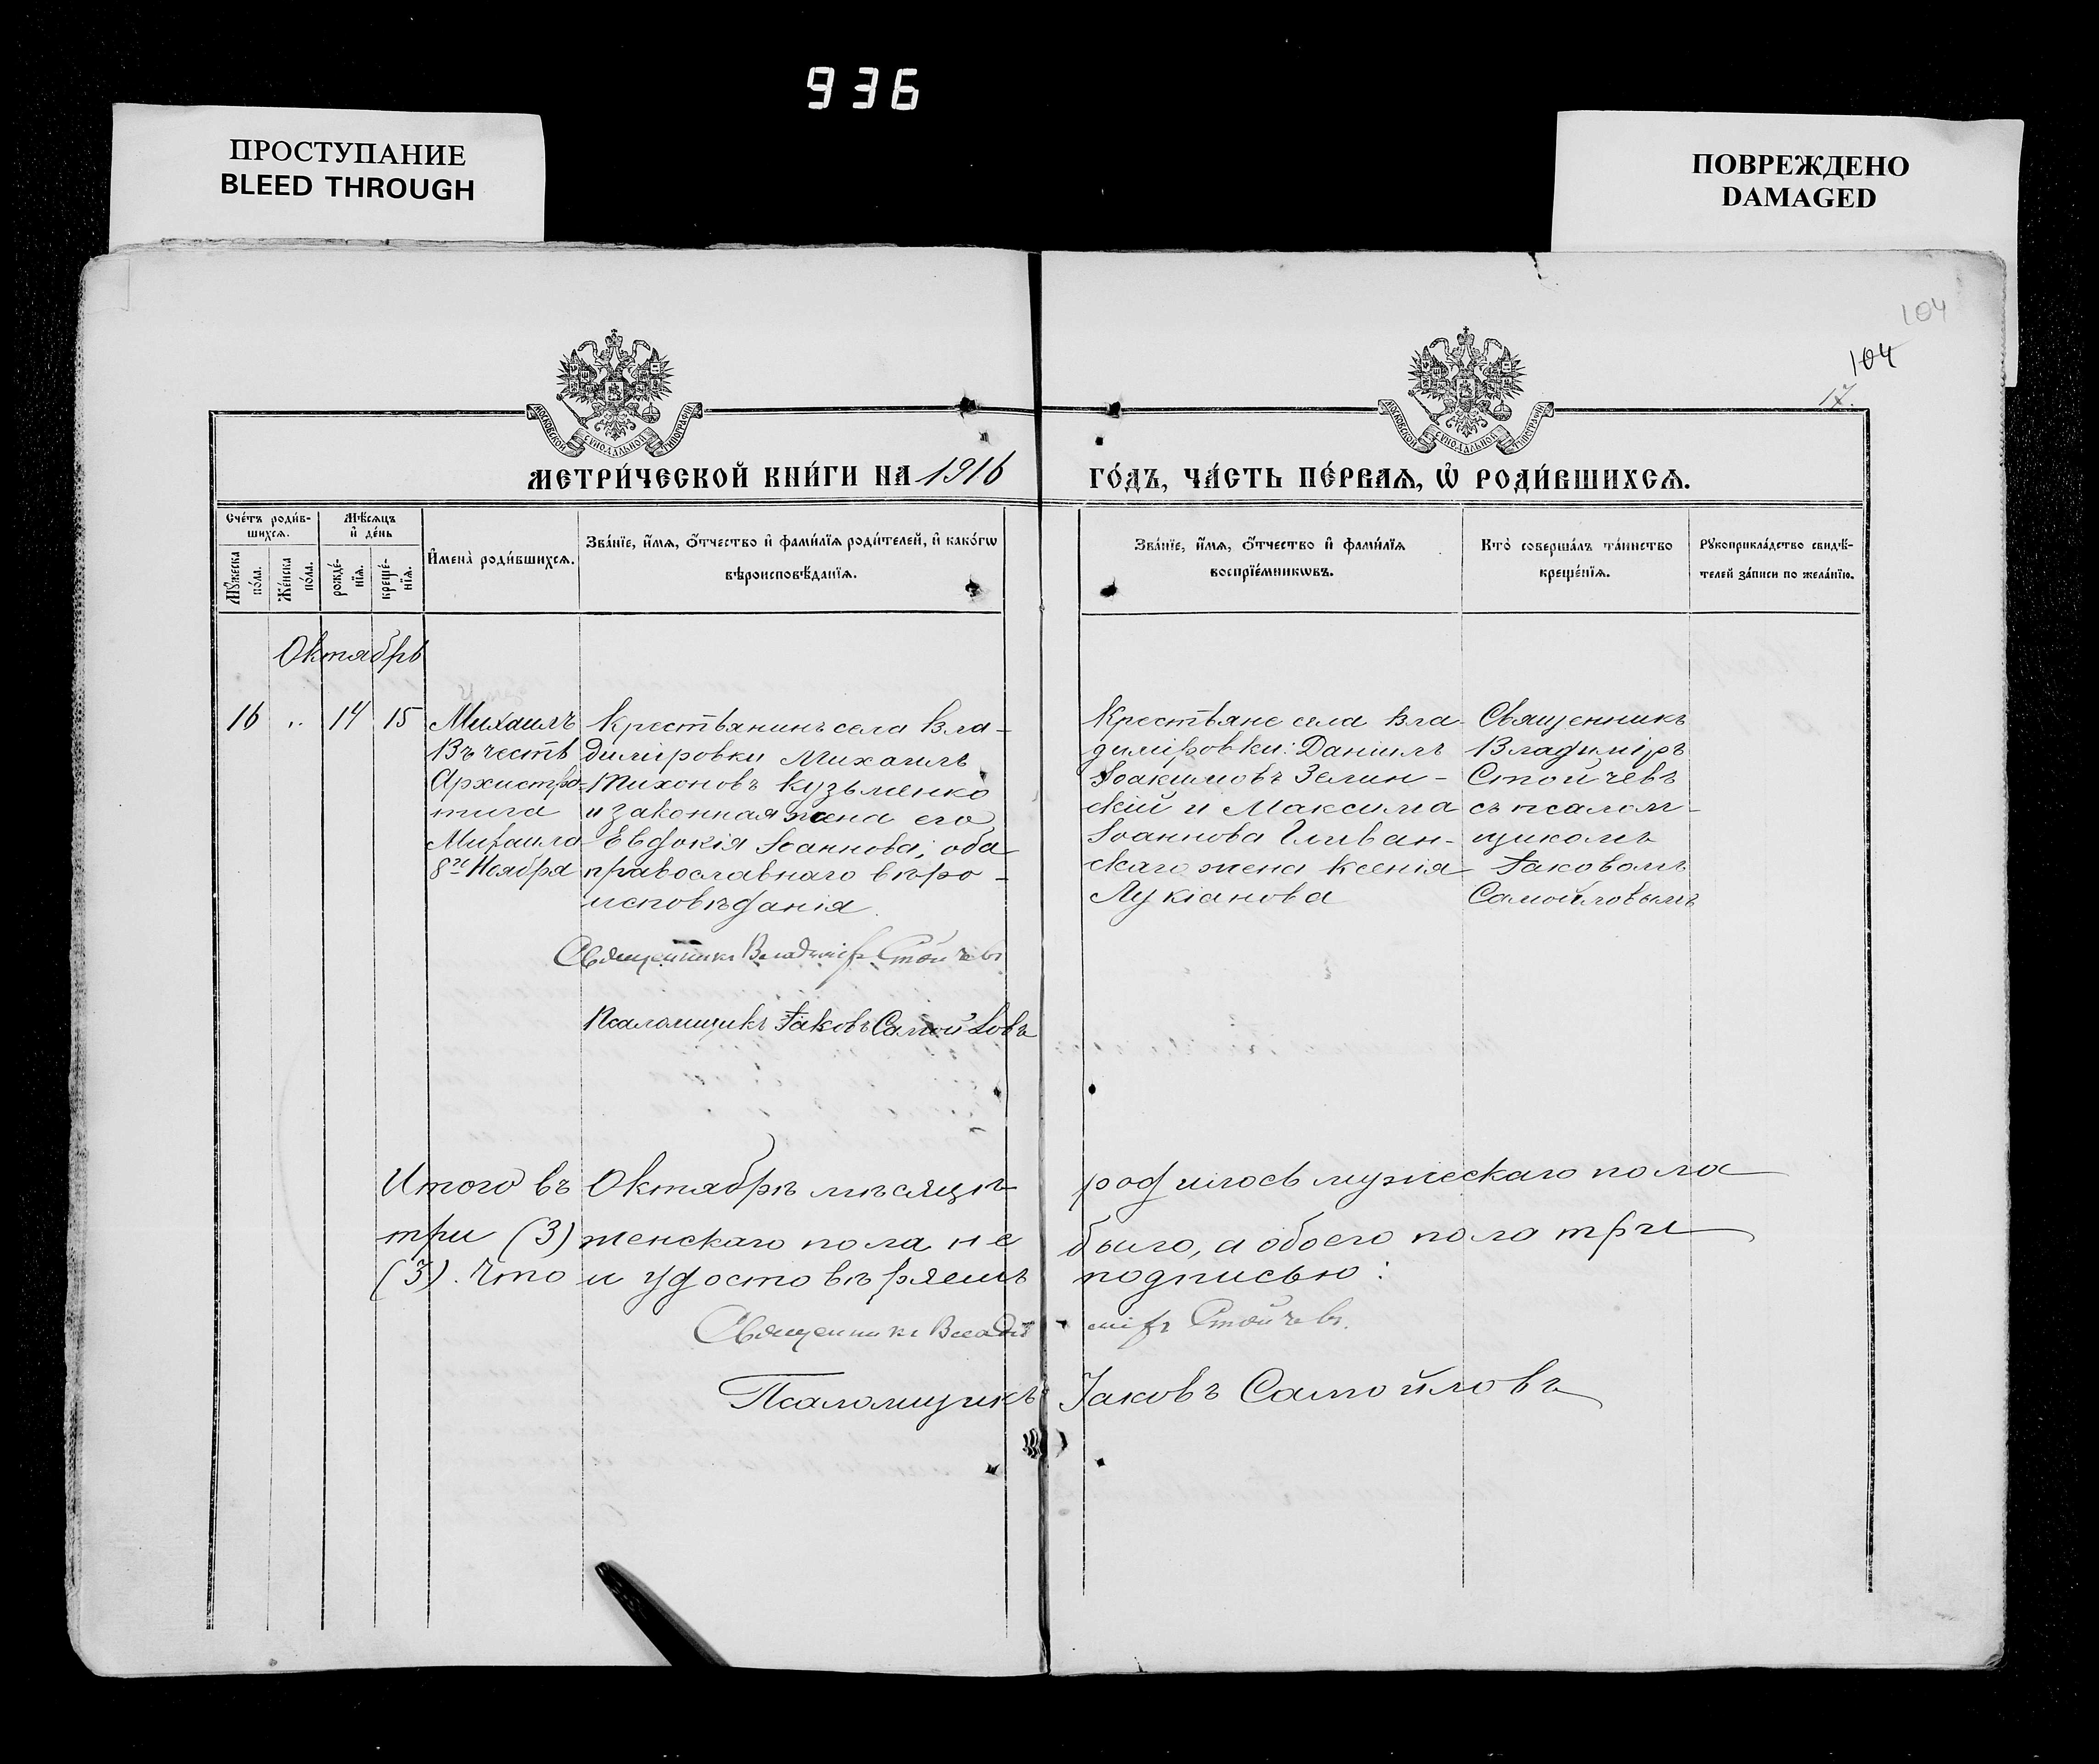 936
ПРОСТУПАНИЕ
BLEED THROUGH
ПОВРЕЖДЕНО
DAMAGED
104
104
17.
МОСКОВСКОЙ СѴНОДАЛЬНОЙ ТИПОГРАФІИ
МОСКОВСКОЙ СѴНОДАЛЬНОЙ ТИПОГРАФІИ
МЕТРИ́ЧЕСКОЙ КНИ́ГИ НА 1916 ГО́ДЪ, ЧА́СТЬ ПЕ́РВАѦ, Ѡ҆ РОДИ́ВШИХСѦ.
Сче́тъ роди́в-
шихсѧ.
Мꙋ́жеска по́ла.
Же́нска по́ла.
Мѣ́сѧцъ
и҆ де́нь
рожде́-
нїѧ.
креще́-
нїѧ.
И҆мена̀ роди́вшихсѧ.
Зва́нїе, и҆́мѧ, ѻ҆́тчество и҆ фами́лїѧ роди́телей, и҆ како́гѡ
вѣроисповѣ́данїѧ.
Зва́нїе, и҆́мѧ, ѻ҆́тчество и҆ фами́лїѧ
воспрїе́мникѡвъ.
Кто̀ соверша́лъ та́инство
креще́нїѧ.
Рꙋкоприкла́дство свидѣ́-
телей за́писи по жела́нїю.
Октябрь
16 " 14 15
Михаилъ
Въ честь
Архистра-
тига
Михаила
8го Ноября
Крестьянинъ села Вла-
диміровки Михаилъ
Тихоновъ Кузьменко
и законная жена его
Евдокія Іоаннова; оба
православнаго вѣро-
исповѣданія.
Крестьяне села Вла-
диміровки: Даніилъ
Іоакимовъ Зелин-
скій и Максима
Іоаннова Гливан-
скаго жена Ксенія
Лукіанова
Священникъ
Владиміръ
Стойчевъ
съ псалом-
щикомъ
Іаковомъ
Самойловымъ
Священникъ Владиміръ Стойчевъ
Псаломщикъ Іаковъ Самойловъ
Итого въ Октябрѣ мѣсяцѣ родилось мужескаго пола
три (3) женскаго пола не было, а обоего пола три
(3). Что и удостовѣряемъ подписью:
Священникъ Владиміръ Стойчевъ.
Псаломщикъ Іаковъ Самойловъ